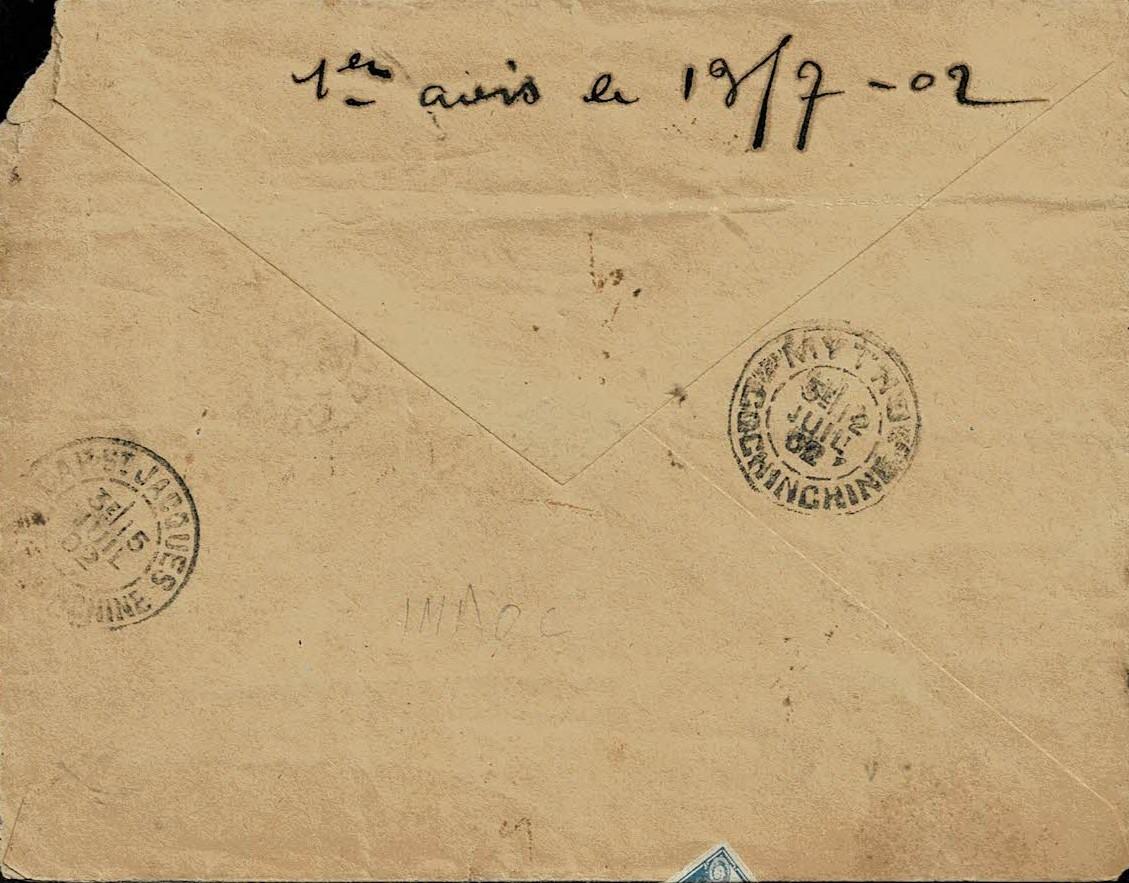 1er avis le 19/7-02
MYTHO
3E/12
JUIL
02
COCHINCHINE
ST JACQUES
3E/15
JUIL
02
CHINE